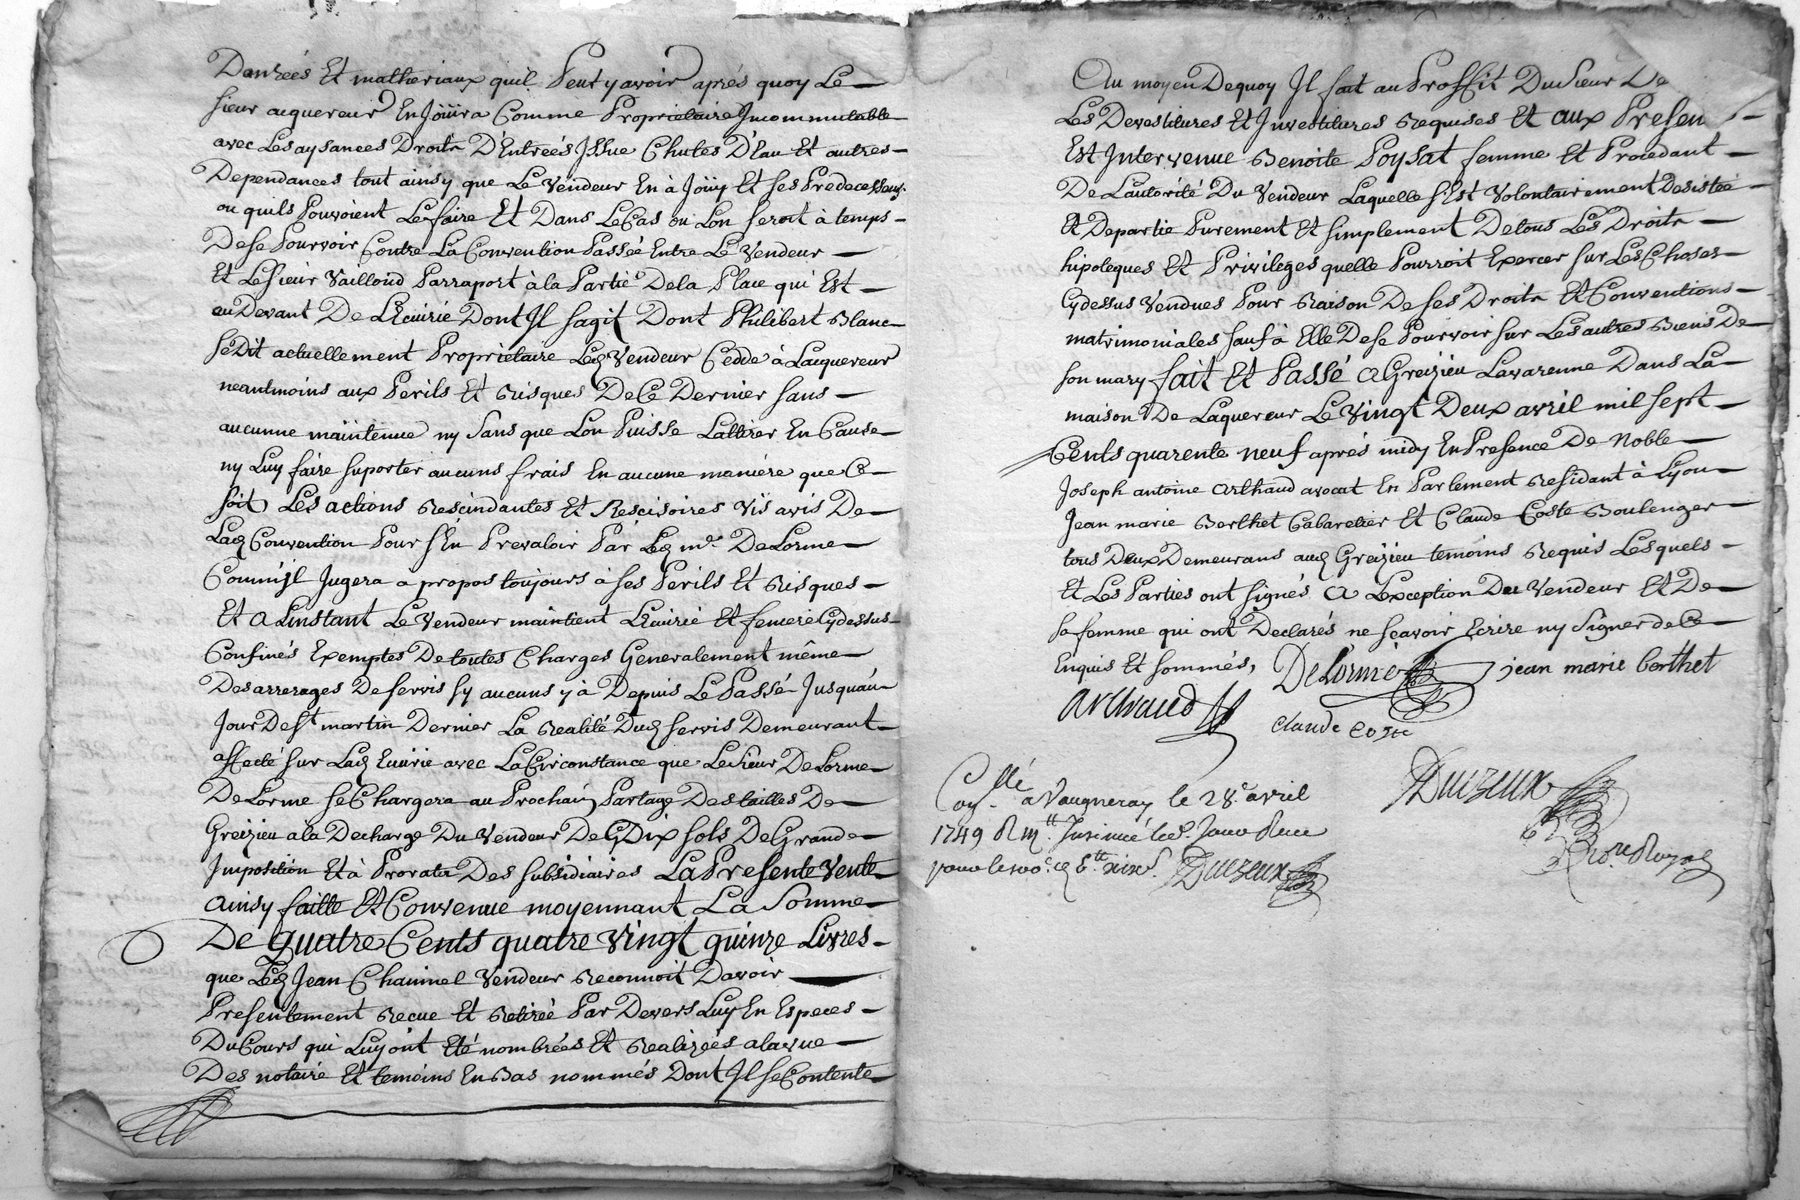 Danrées Et matheriaux quil Peut y avoir après quoy Le
sieur acquereur En Joüira Comme Proprietaire Jncommutable
avec Les aysances Droits D'Entreés Jssue Chutes D'Eau Et autres
Dependances tout ainsy que Le Vendeur En à Joüy Et ses Predecesseurs
ou quils Pouvoient Le faire Et Dans Le Cas ou Lon seroit à temps
De se Pourvoir Contre La Convention Passée Entre Le Vendeur
Et Le sieur Vailloud Par raport à la Partie De la Place qui Est
au Devant De L'Ecuirie Dont Jl sagit Dont Philibert Blanc
se Dit actuellement Proprietaire Led Vendeur Cedde à Lacquereur
neantmoins aux Perils Et Risques De Ce Dernier sans
aucunne maintenue ny sans que Lon Puisse Lattirer En Cause
ny Luy faire suporter aucuns frais En aucune maniére que Ce
soit Les actions Rescindantes Et Rescisoires Vis avis De
Lad Convention Pour s'En Prevaloir Par Led mr DeLorme
Comm'jl Jugera a propos toujours à ses Perils Et Risques
Et a Linstant Le Vendeur maintient L'Ecuirie Et feneire Cydessus
Confinés Exemptes De toutes Charges Generalement même
Des arrerages De servis sy aucuns y à Depuis Le Passé Jusquau
Jour De st martin Dernier La Realité Dud servis Demeurant
affecté sur Lad Ecuirie avec La Circonstance que Le sieur DeLorme
DeLorme se Chargera au Prochain Partage Des tailles De
Greizieu à la Decharge Du Vendeur De Dix sols De Grande
Jmposition Et à Prorata Des subsidiaires La Presente Vente
ainsy faitte Et Convenue moyennant La Somme
De quatre Cents quatre Vingt quinze Livres
que Led Jean Chaninel Vendeur Reconnoit Davoir
Presentement Recue Et Retirée Par Devers Luy En Especes
Du Cours qui Luy ont Eté nombrées Et Realizées a la vue
Des notaire Et temoins En Bas nommés Dont Jl se Contente
Au moyen Dequoy Jl fait au Proffit Du sieur De
Les Devestitures Et Jnvestitures Requises Et aux Presen
Est Intervenue Benoite Poysat femme Et Procedant
De Lautorité Du Vendeur Laquelle s'Est Volontairement Desistée
Et Departie Purement Et simplement De tous Les Droits
hipoteques Et Privileges quelle Pourroit Exercer sur Les Choses
Cydessus Vendues Pour Raison De ses Droits Et Conventions
matrimoniales sauf à Elle De se Pourvoir sur Les autres Biens De
son mary fait Et Passé a Greizieu Lavarenne Dans La
maison De Laquereur Le Vingt Deux avril mil sept
Cents quarente neuf après midy En Presence De Noble
Joseph antoine arthaud avocat En Parlement Residant à Lyon
Jean marie Berthet Cabaretier Et Claude Coste Boulenger
tous Deux Demeurans aud Greizieu temoins Requis Lesquels
Et Les Parties ont signés a Lexception Du Vendeur Et De
sa femme qui ont Declarés ne scavoir Ecrire ny Signer de Ce
Enquis Et sommés, DeLorme jean marie berthet
Arthaud
claude coste
Conllé a Vaugneray le 28e avril
1749
Duezeux
Duezeux